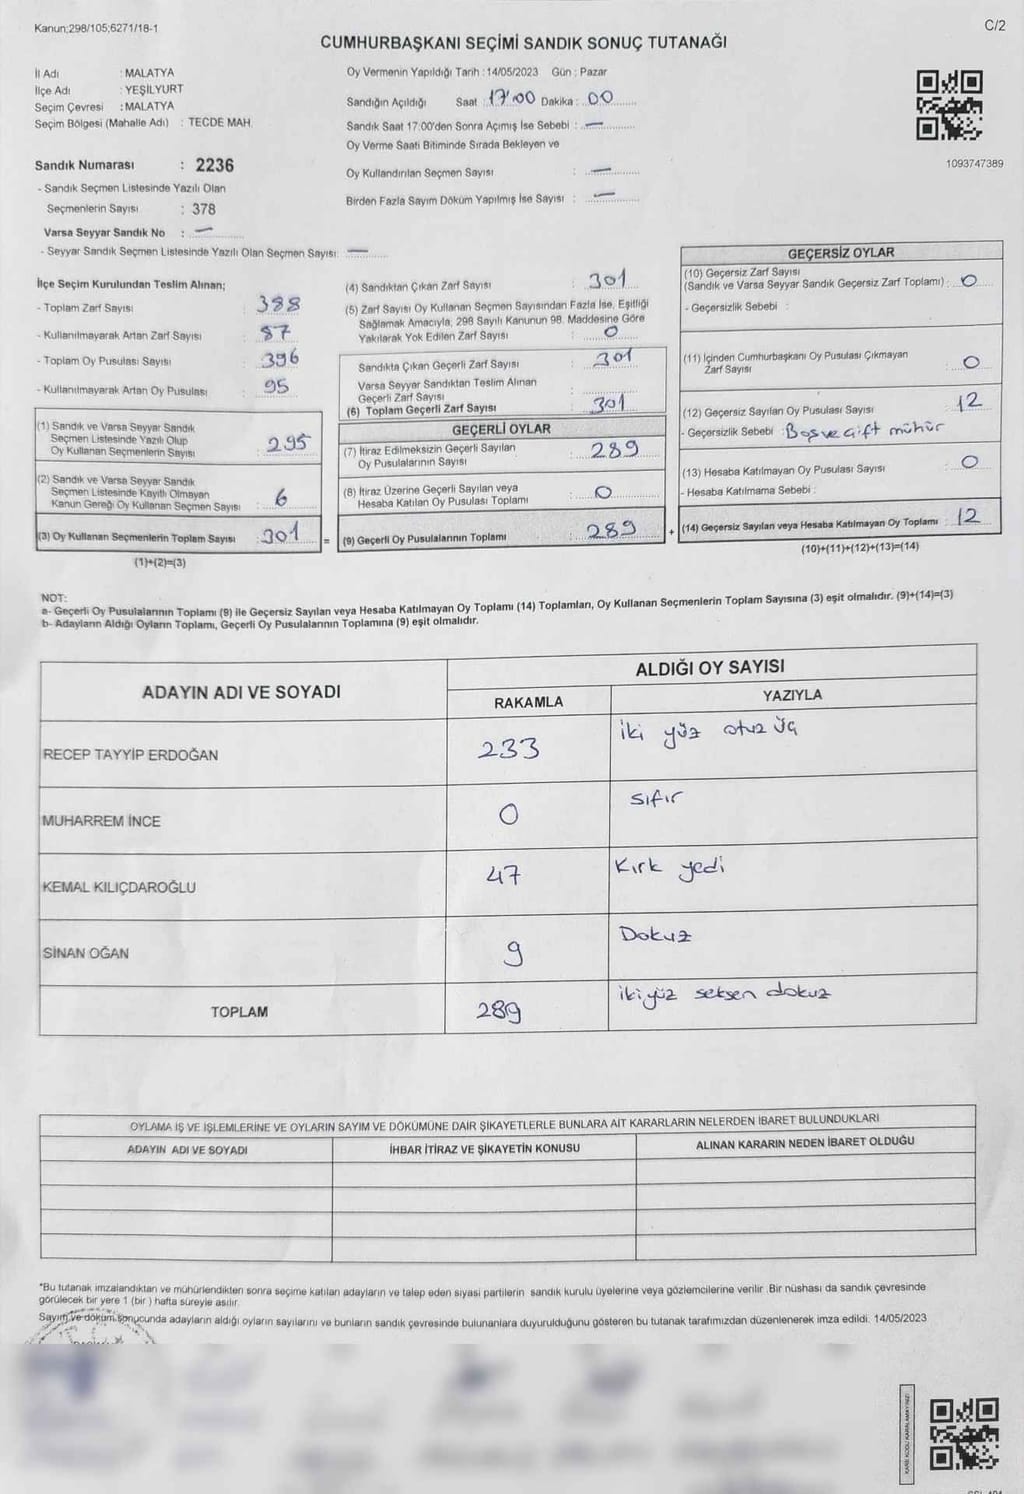 Kanun;298/105;6271/18-1
C/2
CUMHURBAŞKANI SEÇİMİ SANDIK SONUÇ TUTANAĞI
İl Adı : MALATYA
İlçe Adı : YEŞİLYURT
Seçim Çevresi : MALATYA
Seçim Bölgesi (Mahalle Adı) : TECDE MAH.
Sandık Numarası : 2236
- Sandık Seçmen Listesinde Yazılı Olan
Seçmenlerin Sayısı : 378
Varsa Seyyar Sandık No : —
- Seyyar Sandık Seçmen Listesinde Yazılı Olan Seçmen Sayısı: —
Oy Vermenin Yapıldığı Tarih : 14/05/2023 Gün : Pazar
Sandığın Açıldığı Saat : 17:00 Dakika : 00
Sandık Saat 17:00'den Sonra Açımış İse Sebebi : —
Oy Verme Saati Bitiminde Sırada Bekleyen ve
Oy Kullandırılan Seçmen Sayısı : —
Birden Fazla Sayım Döküm Yapılmış İse Sayısı : —
1093747389
İlçe Seçim Kurulundan Teslim Alınan;
- Toplam Zarf Sayısı : 388
- Kullanılmayarak Artan Zarf Sayısı : 87
- Toplam Oy Pusulası Sayısı : 396
- Kullanılmayarak Artan Oy Pusulası : 95
(1) Sandık ve Varsa Seyyar Sandık
Seçmen Listesinde Yazılı Olup
Oy Kullanan Seçmenlerin Sayısı : 295
(2) Sandık ve Varsa Seyyar Sandık
Seçmen Listesinde Kayıtlı Olmayan
Kanun Gereği Oy Kullanan Seçmen Sayısı : 6
(3) Oy Kullanan Seçmenlerin Toplam Sayısı : 301 =
(1)+(2)=(3)
(4) Sandıktan Çıkan Zarf Sayısı : 301
(5) Zarf Sayısı Oy Kullanan Seçmen Sayısından Fazla İse, Eşitliği
Sağlamak Amacıyla, 298 Sayılı Kanunun 98. Maddesine Göre
Yakılarak Yok Edilen Zarf Sayısı : 0
Sandıkta Çıkan Geçerli Zarf Sayısı : 301
Varsa Seyyar Sandıktan Teslim Alınan
Geçerli Zarf Sayısı :
(6) Toplam Geçerli Zarf Sayısı : 301
GEÇERLİ OYLAR
(7) İtiraz Edilmeksizin Geçerli Sayılan
Oy Pusulalarının Sayısı : 289
(8) İtiraz Üzerine Geçerli Sayılan veya
Hesaba Katılan Oy Pusulası Toplamı : 0
(9) Geçerli Oy Pusulalarının Toplamı : 289 +
GEÇERSİZ OYLAR
(10) Geçersiz Zarf Sayısı
(Sandık ve Varsa Seyyar Sandık Geçersiz Zarf Toplamı) : 0
- Geçersizlik Sebebi :
(11) İçinden Cumhurbaşkanı Oy Pusulası Çıkmayan
Zarf Sayısı : 0
(12) Geçersiz Sayılan Oy Pusulası Sayısı : 12
- Geçersizlik Sebebi : Boş ve çift mühür
(13) Hesaba Katılmayan Oy Pusulası Sayısı : 0
- Hesaba Katılmama Sebebi :
(14) Geçersiz Sayılan veya Hesaba Katılmayan Oy Toplamı : 12
(10)+(11)+(12)+(13)=(14)
NOT:
a- Geçerli Oy Pusulalarının Toplamı (9) ile Geçersiz Sayılan veya Hesaba Katılmayan Oy Toplamı (14) Toplamları, Oy Kullanan Seçmenlerin Toplam Sayısına (3) eşit olmalıdır. (9)+(14)=(3)
b- Adayların Aldığı Oyların Toplamı, Geçerli Oy Pusulalarının Toplamına (9) eşit olmalıdır.
ADAYIN ADI VE SOYADI
ALDIĞI OY SAYISI
RAKAMLA YAZIYLA
RECEP TAYYİP ERDOĞAN 233 iki yüz otuz üç
MUHARREM İNCE 0 sıfır
KEMAL KILIÇDAROĞLU 47 Kırk yedi
SİNAN OĞAN 9 Dokuz
TOPLAM 289 ikiyüz seksen dokuz
OYLAMA İŞ VE İŞLEMLERİNE VE OYLARIN SAYIM VE DÖKÜMÜNE DAİR ŞİKAYETLERLE BUNLARA AİT KARARLARIN NELERDEN İBARET BULUNDUKLARI
ADAYIN ADI VE SOYADI İHBAR İTİRAZ VE ŞİKAYETİN KONUSU ALINAN KARARIN NEDEN İBARET OLDUĞU
*Bu tutanak imzalandıktan ve mühürlendikten sonra seçime katılan adayların ve talep eden siyasi partilerin sandık kurulu üyelerine veya gözlemcilerine verilir. Bir nüshası da sandık çevresinde
görülecek bir yere 1 (bir ) hafta süreyle asılır.
Sayım ve döküm sonucunda adayların aldığı oyların sayılarını ve bunların sandık çevresinde bulunanlara duyurulduğunu gösteren bu tutanak tarafımızdan düzenlenerek imza edildi. 14/05/2023
KARE KODU KARALAMAYINIZ!